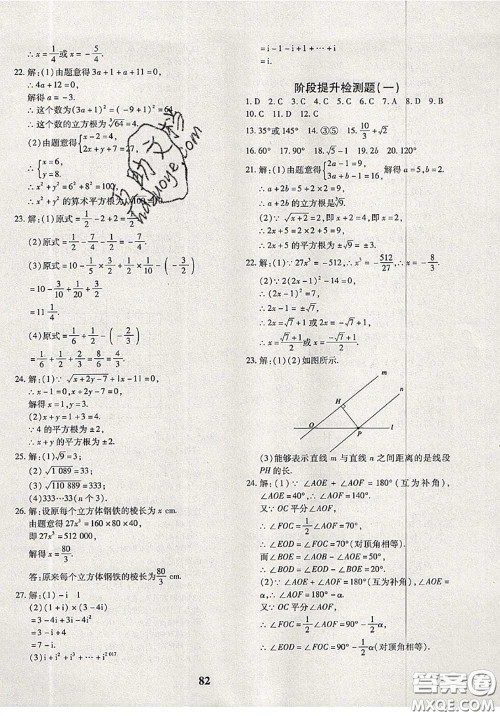 ∴x=1/4或x=-5/4.
22. 解:(1)由题意得3a+1+a+11=0,
∴4a+12=0,
解得a=-3.
∴这个数为(3a+1)²=(-9+1)²=64.
∴这个数的立方根为∛64=4.
(2)由题意得
{x-2=4,
2x+y+7=27,
∴{x=6,
y=8.
∴x²+y²=6²+8²=100.
∴x²+y²的算术平方根为
23. 解:(1)原式=1/2-2+1=-1/2.
(2)原式=1/2-7/4-1/2=-7/4.
(3)原式=10-1/5×3/2+1/10×(-2/5)
=10-3/10+11/10+1/5
=11 1/4.
(4)原式=1/6+1/2+
=1/6+1/2+2/6+4/6=8/6=4/3.
24. 解:(1)∵√(x+2y-7)+|x-1|=0,
解得x=1,y=3.
(2)x+y=1+3=4.
∵4的平方根为±2,
∴x+y的平方根为±2.
25. 解:(1)√9=3;
(2)√1 089=33;
(3)√110 889=333;
(4)333…33(n个3)
26. 解:设原来每个立方体钢铁的棱长为x cm.
由题意得27x³=160×80×40,
即27x³=512 000,
解得x=80/3.
答:原来每个立方体钢铁的棱长为80/3 cm.
27. 解:(1)-i 1
(2)(1+i)×(3-4i)
=3-4i+3i-4i²
=7-i.
(3)i+i²+i³+…+i²⁰¹⁷
=i-1-i+1+…+i
=i.
阶段提升检测题(一)
1. D 2. C 3. C 4. D 5. B 6. C 7. A 8. D 9. B
10. C 11. C 12. D
13. 35°或145° 14. ③⑤ 15. 10/3+√2
16. 60° 17. 90° 18. 5 19. -2 20. 120°
21. 解:(1)由题意得{2a-1=9,
3a+b-1=16,
解得a=5,b=2.
∴a+2b=5+2×2=9.
∴a+2b的立方根是∛9.
(2)∵√(x+2)=2,即x+2=4,即x=2,
∴2x+5=2×2+5=9.
∴2x+5的平方根为±√9=±3.
22. 解:(1)∵27x³=-512,∴x³=-512/27,∴x=-8/3.
(2)∵2(2x-1)²-14=0,
∴(2x-1)²=7.
∴2x-1=±√7.
∴2x=±√7+1.
∴x=(±√7+1)/2.
23. 解:(1)(2)如图所示.
m
n
H
O
P
(3)能够表示直线m与直线n之间距离的是线段
PH的长.
24. 解:(1)∵∠AOE+∠AOF=180°(互为补角),
∠AOE=40°,∴∠AOF=140°.
又∵OC平分∠AOF,
∴∠FOC=1/2∠AOF=70°.
∴∠EOD=∠FOC=70°(对顶角相等).
∴∠BOE=∠AOB-∠AOE=50°.
∴∠BOD=∠EOD-∠BOE=20°.
(2)∵∠AOE+∠AOF=180°(互为补角),∠AOE=α,
∴∠AOF=180°-α.
又∵OC平分∠AOF,
∴∠FOC=1/2∠AOF=90°-1/2α.
∴∠EOD=∠FOC=90°-1/2α(对顶角相等).
82
MXQE.COM